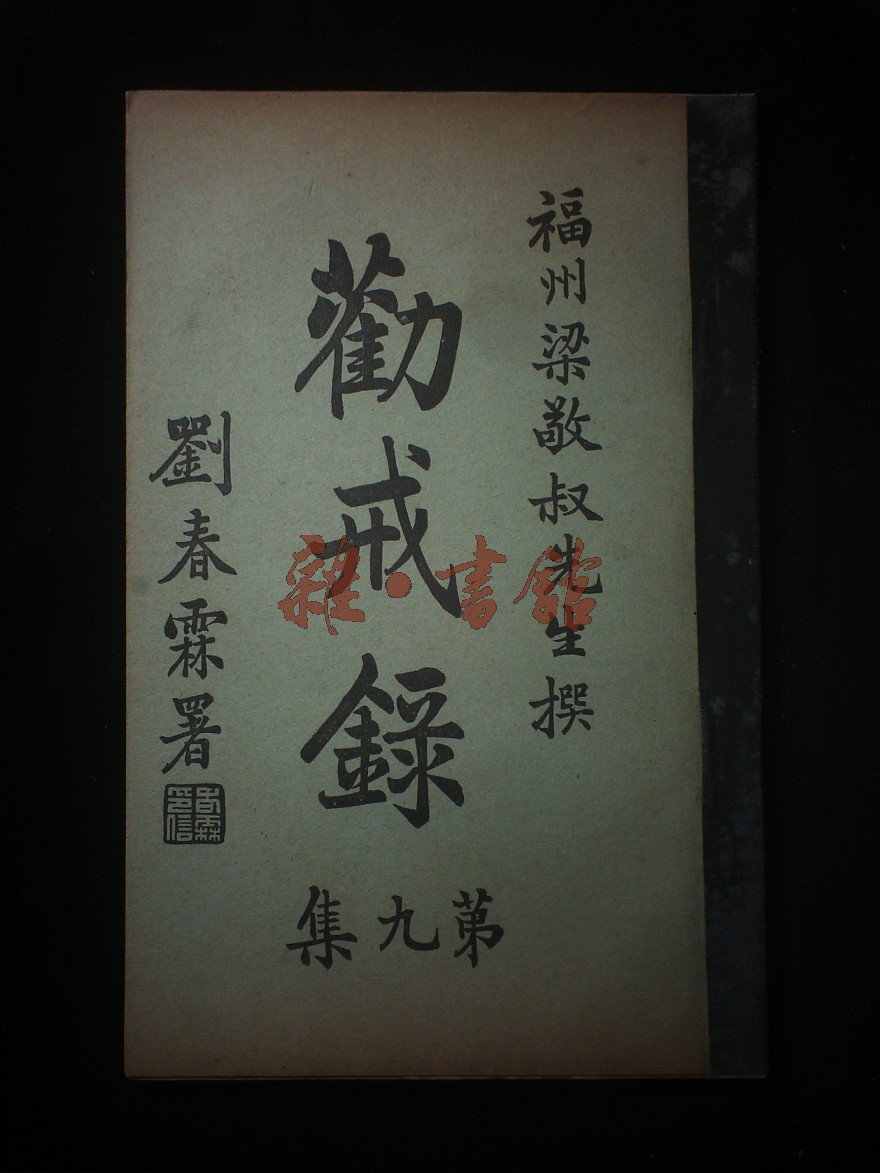 福州梁敬叔先生撰
勸戒錄
第九集
劉春霖署
春霖印信
雜·書館